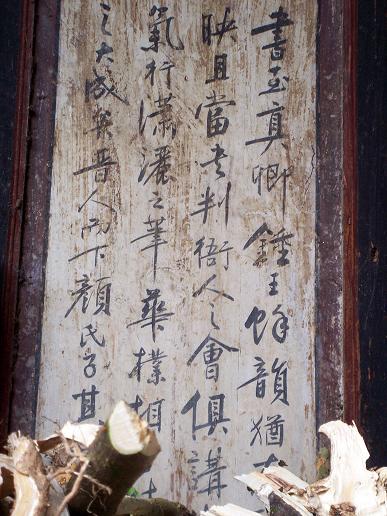 書至真卿鍾王餘韻猶
映且當判衙人之會俱講
氣行瀟灑之筆華樸相
之大成矣晉人而下顏氏子